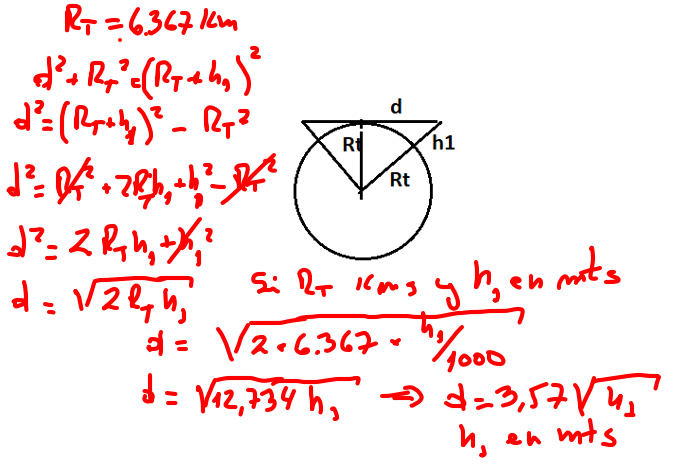 R_T = 6.367 Km
d² + R_T² = (R_T + h₁)²
d² = (R_T + h₁)² - R_T²
d² = R_T² + 2R_T h₁ + h₁² - R_T²
d² = 2 R_T h₁ + h₁²
d = √(2 R_T h₁)
d
Rt
h1
Rt
Si R_T Kms y h₁ en mts
d = √(2 · 6.367 · h₁/1000)
d = √(12,734 h₁) ⇒ d = 3,57 √(h₁)
h₁ en mts